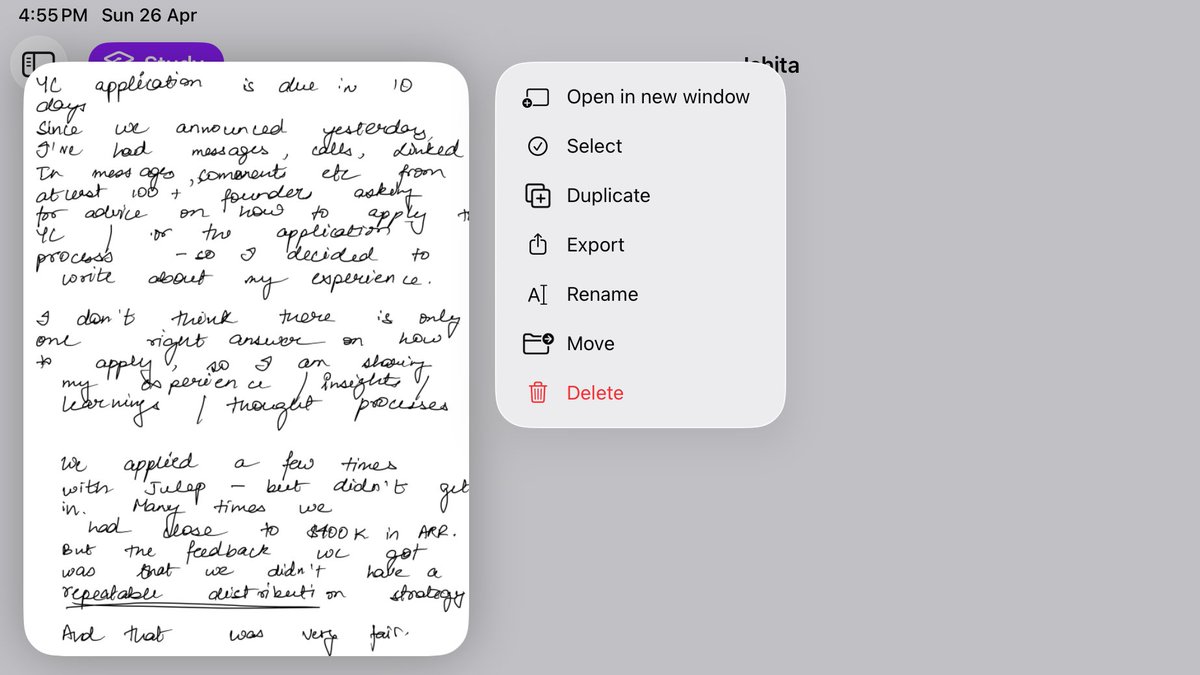 4:55 PM Sun 26 Apr
Study
Ishita
YC application is due in 10
days
Since we announced yesterday,
I've had messages, calls, Linked
In messages, comments etc from
atleast 100 + founders asking
for advice on how to apply to
YC / or the application
process - so I decided to
write about my experience.
I don't think there is only
one right answer on how
to apply, so I am sharing
my experience / insights /
learnings / thought processes
We applied a few times
with Julep - but didn't get
in. Many times we
had close to $400K in ARR.
But the feedback we got
was that we didn't have a
repeatable distribution strategy
And that was very fair.
Open in new window
Select
Duplicate
Export
Rename
Move
Delete